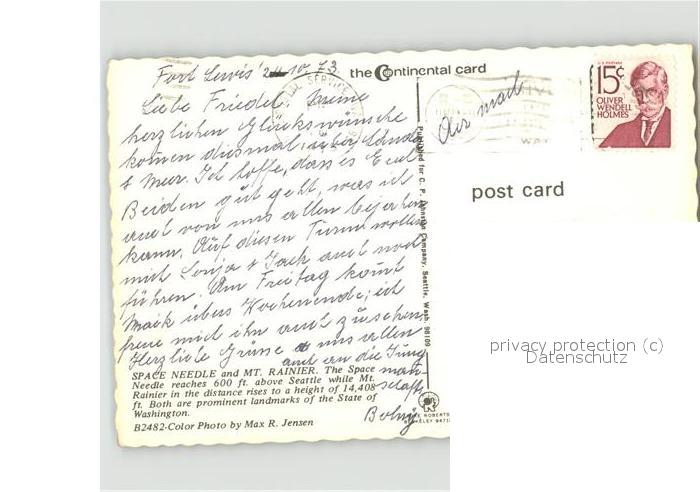 Fort Lewis 24.10.73.
the Continental card
Liebe Friedel! Meine
herzlichen Glückswünsche
kommen diesmal über Länder
& Meer. Ich hoffe, dass es Euch
Beiden gut geht, was ich
auch von uns allen
kann. Auf diesen Turm wollen
mich Sonja & Jack auch noch
führen. Am Freitag kommt
Maik übers Wochenende, ich
freue mich ihn auch zu sehen.
Herzliche Grüsse uns allen
auch an die Jung
mann
schafts
SPACE NEEDLE and MT. RAINIER. The Space
Needle reaches 600 ft. above Seattle while Mt.
Rainier in the distance rises to a height of 14,408
ft. Both are prominent landmarks of the State of
Washington.
B2482-Color Photo by Max R. Jensen
Published for C. P. Johnston Company, Seattle, Wash. 98109
Air mail
U.S. POSTAGE
15¢
OLIVER
WENDELL
HOLMES
post card
privacy protection (c)
Datenschutz